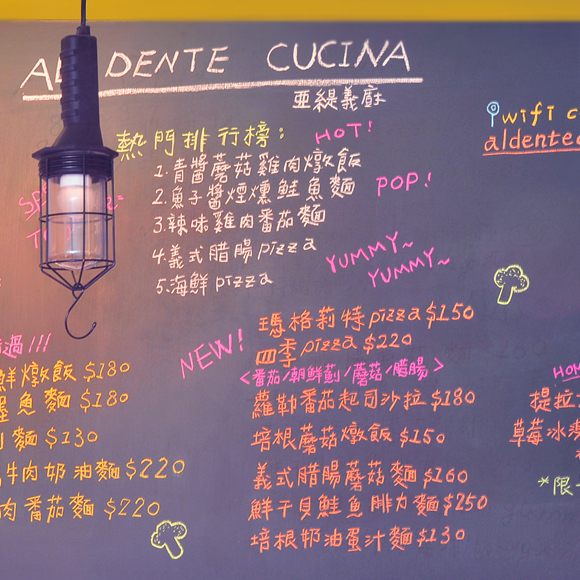 AL DENTE CUCINA
亞緹義廚
熱門排行榜:
HOT!
1.青醬蘑菇雞肉燉飯
2.魚子醬煙燻鮭魚麵
POP!
3.辣味雞肉番茄麵
4.義式腊腸pizza
5.海鮮pizza
YUMMY~
YUMMY~
wifi c
aldented
過!!!
鮮燉飯 $180
魚麵 $180
麵 $130
牛肉奶油麵 $220
肉番茄麵 $220
NEW!
瑪格莉特pizza $150
四季pizza $220
<番茄/朝鮮薊/蘑菇/腊腸>
蘿勒番茄起司沙拉 $180
培根蘑菇燉飯 $150
義式腊腸蘑菇麵 $160
鮮干貝鮭魚腓力麵 $250
培根奶油蛋汁麵 $130
HOM
提拉
草莓冰
*限